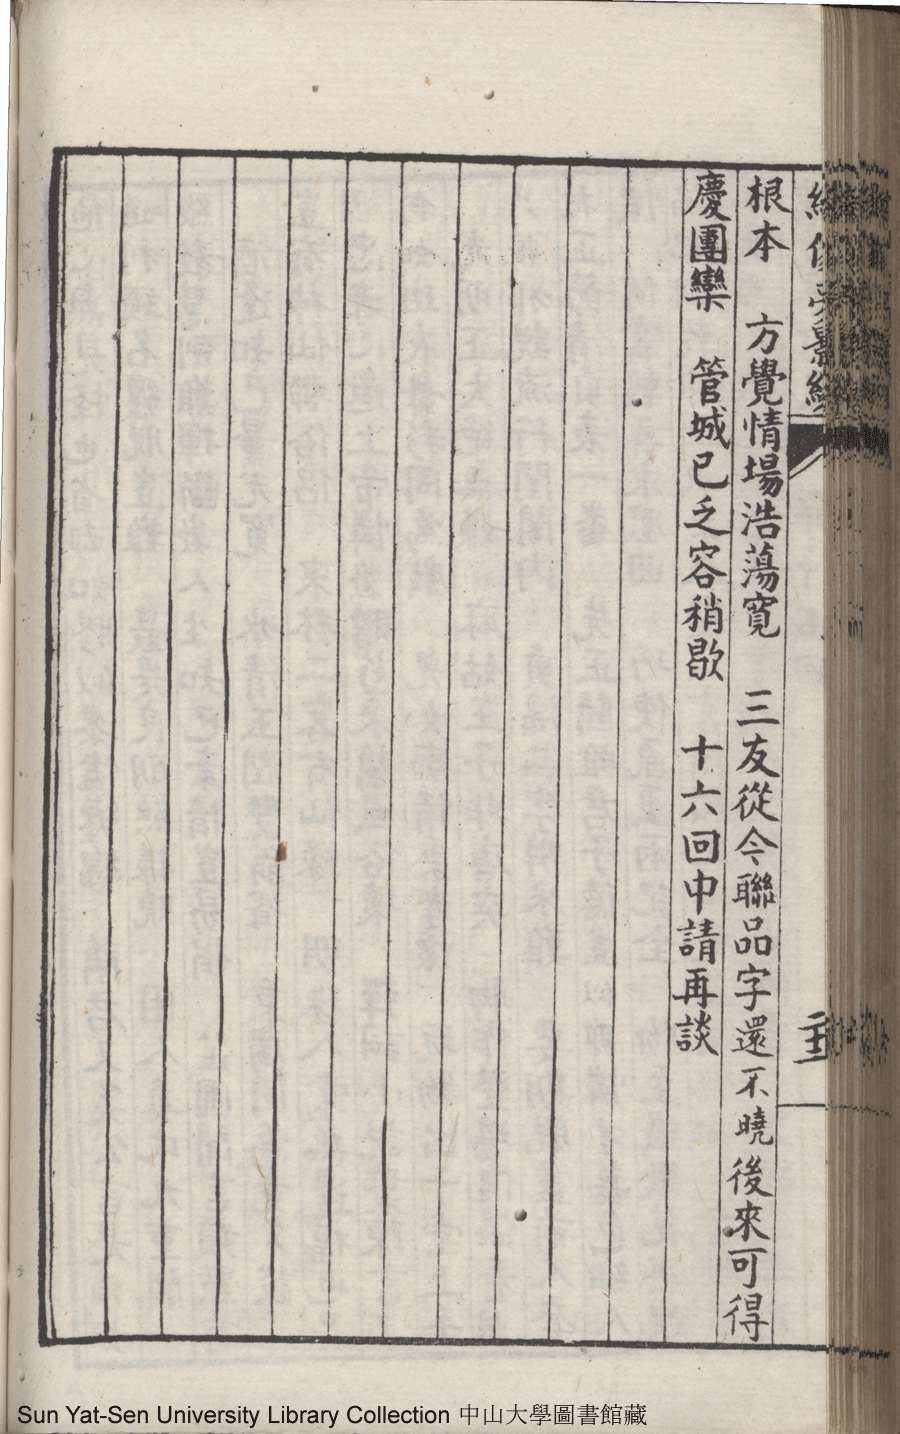 繪像夢影緣
根本　方覺情場浩蕩寬　三友從今聯品字還不曉後來可得
慶團欒　管城已乏容稍歇　十六回中請再談
Sun Yat-Sen University Library Collection 中山大學圖書館藏